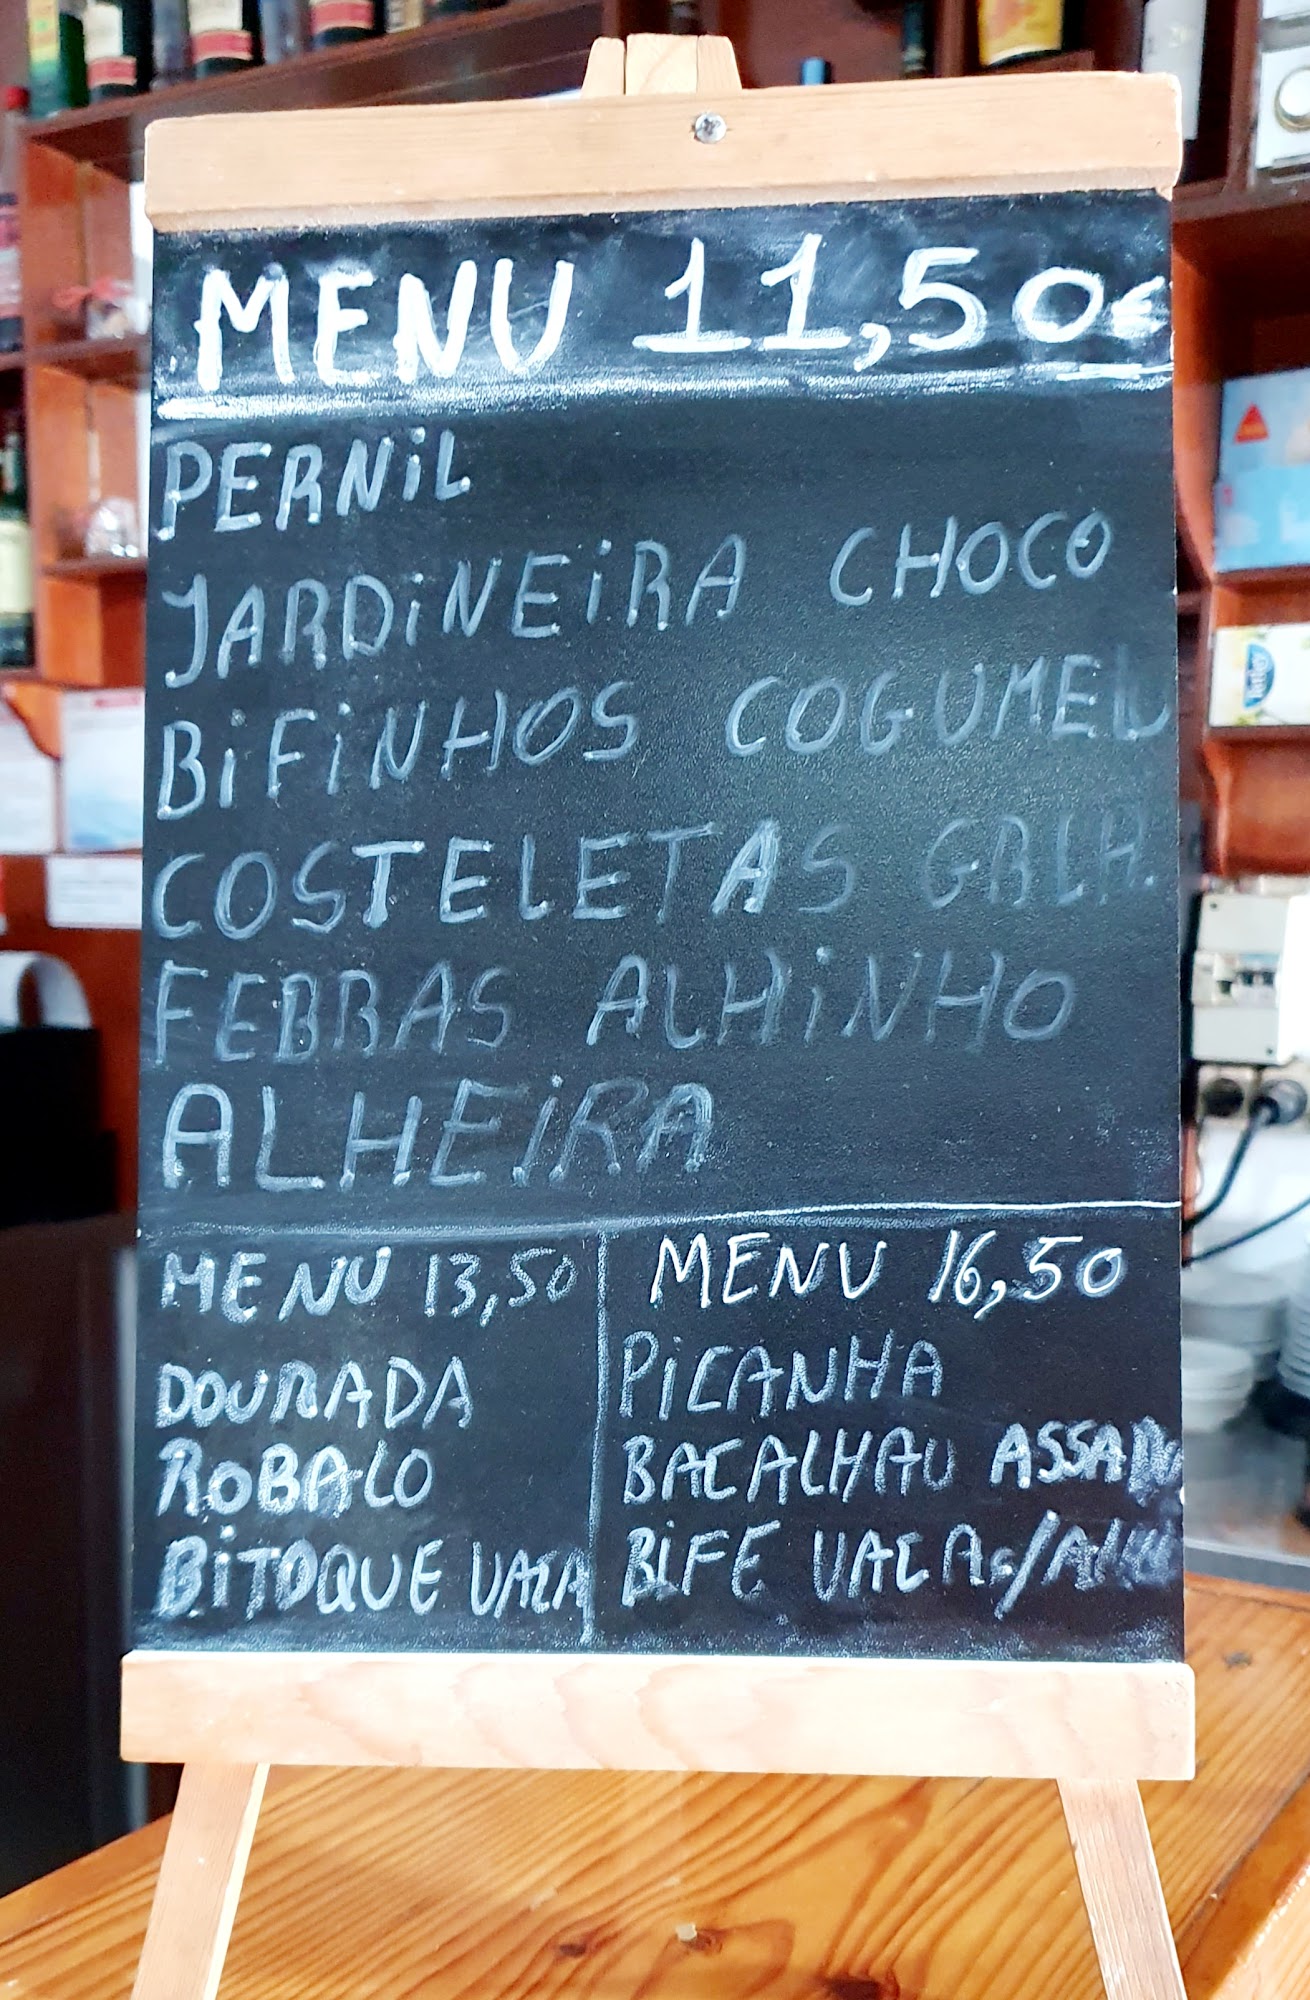 MENU 11,50€
PERNiL
JARDiNEiRA CHOCO
BiFiNHOS COGUMEL
COSTELETAS GRLH.
FEBRAS ALHiNHO
ALHEiRA
MENU 13,50
DOURADA
ROBALO
BiTOQUE VACA
MENU 16,50
PiCANHA
BACALHAU ASSADO
BiFE VACA c/
Tetley